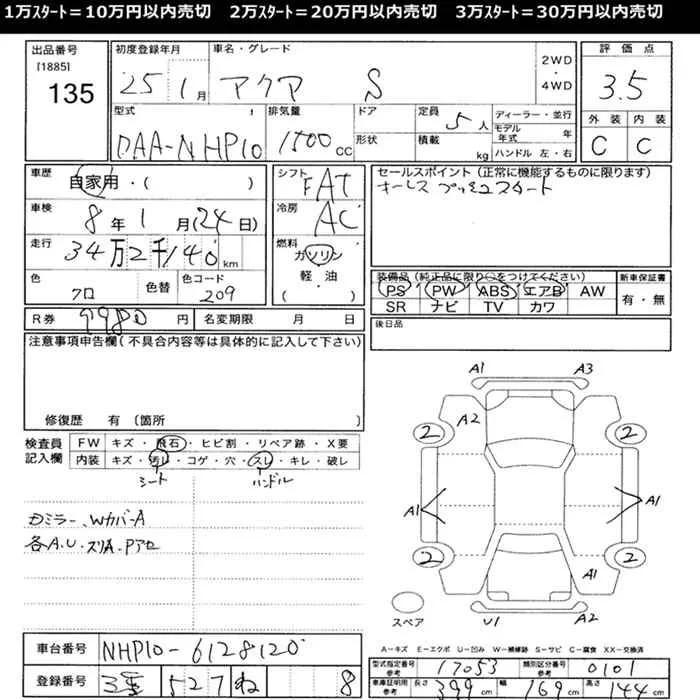 1万ｽﾀｰﾄ＝10万円以内売切　2万ｽﾀｰﾄ＝20万円以内売切　3万ｽﾀｰﾄ＝30万円以内売切
出品番号
[1885]
135
初度登録年月
25 1月
車名・グレード
アクア S
2WD
・
4WD
評価点
3.5
外装 内装
C C
型式
DAA-NHP10
排気量
1500cc
ドア
形状
定員
5人
積載
kg
ディーラー・並行
モデル年式 年
ハンドル 左・右
車歴
自家用・( )
車検
8年1月(24日)
走行
34万2千140km
色
クロ
色替
色コード
209
シフト
FAT
冷房
AC
燃料
ガソリン
軽・油
( )
セールスポイント (正常に機能するものに限ります)
キーレス プッシュスタート
装備品(純正品に限り○をつけてください)
PS PW ABS エアB AW
SR ナビ TV カワ
新車保証書
有・無
後日品
R券 9980円
名変期限 月 日
注意事項申告欄(不具合内容等は具体的に記入して下さい)
修復歴 有 (箇所 )
検査員
記入欄
FW キズ・飛石・ヒビ割・リペア跡・X要
内装 キズ・汚レ・コゲ・穴・スレ・キレ・破レ
シート ハンドル
カミラー、WカバーA
各A.U.スリA.Pアセ
A1 A3
A2
2 2
A1 A1
2 2
A1
スペア
U1 A2
A-キズ E-エクボ U-凹み W-補修跡 S-サビ C-腐食 XX-交換済
車台番号 NHP10-6128120
登録番号 527 ね 8
型式指定番号
参考
17053
類別区分番号
参考
0101
車庫証明用
参考
長さ 399cm 幅 169cm 高さ 144cm